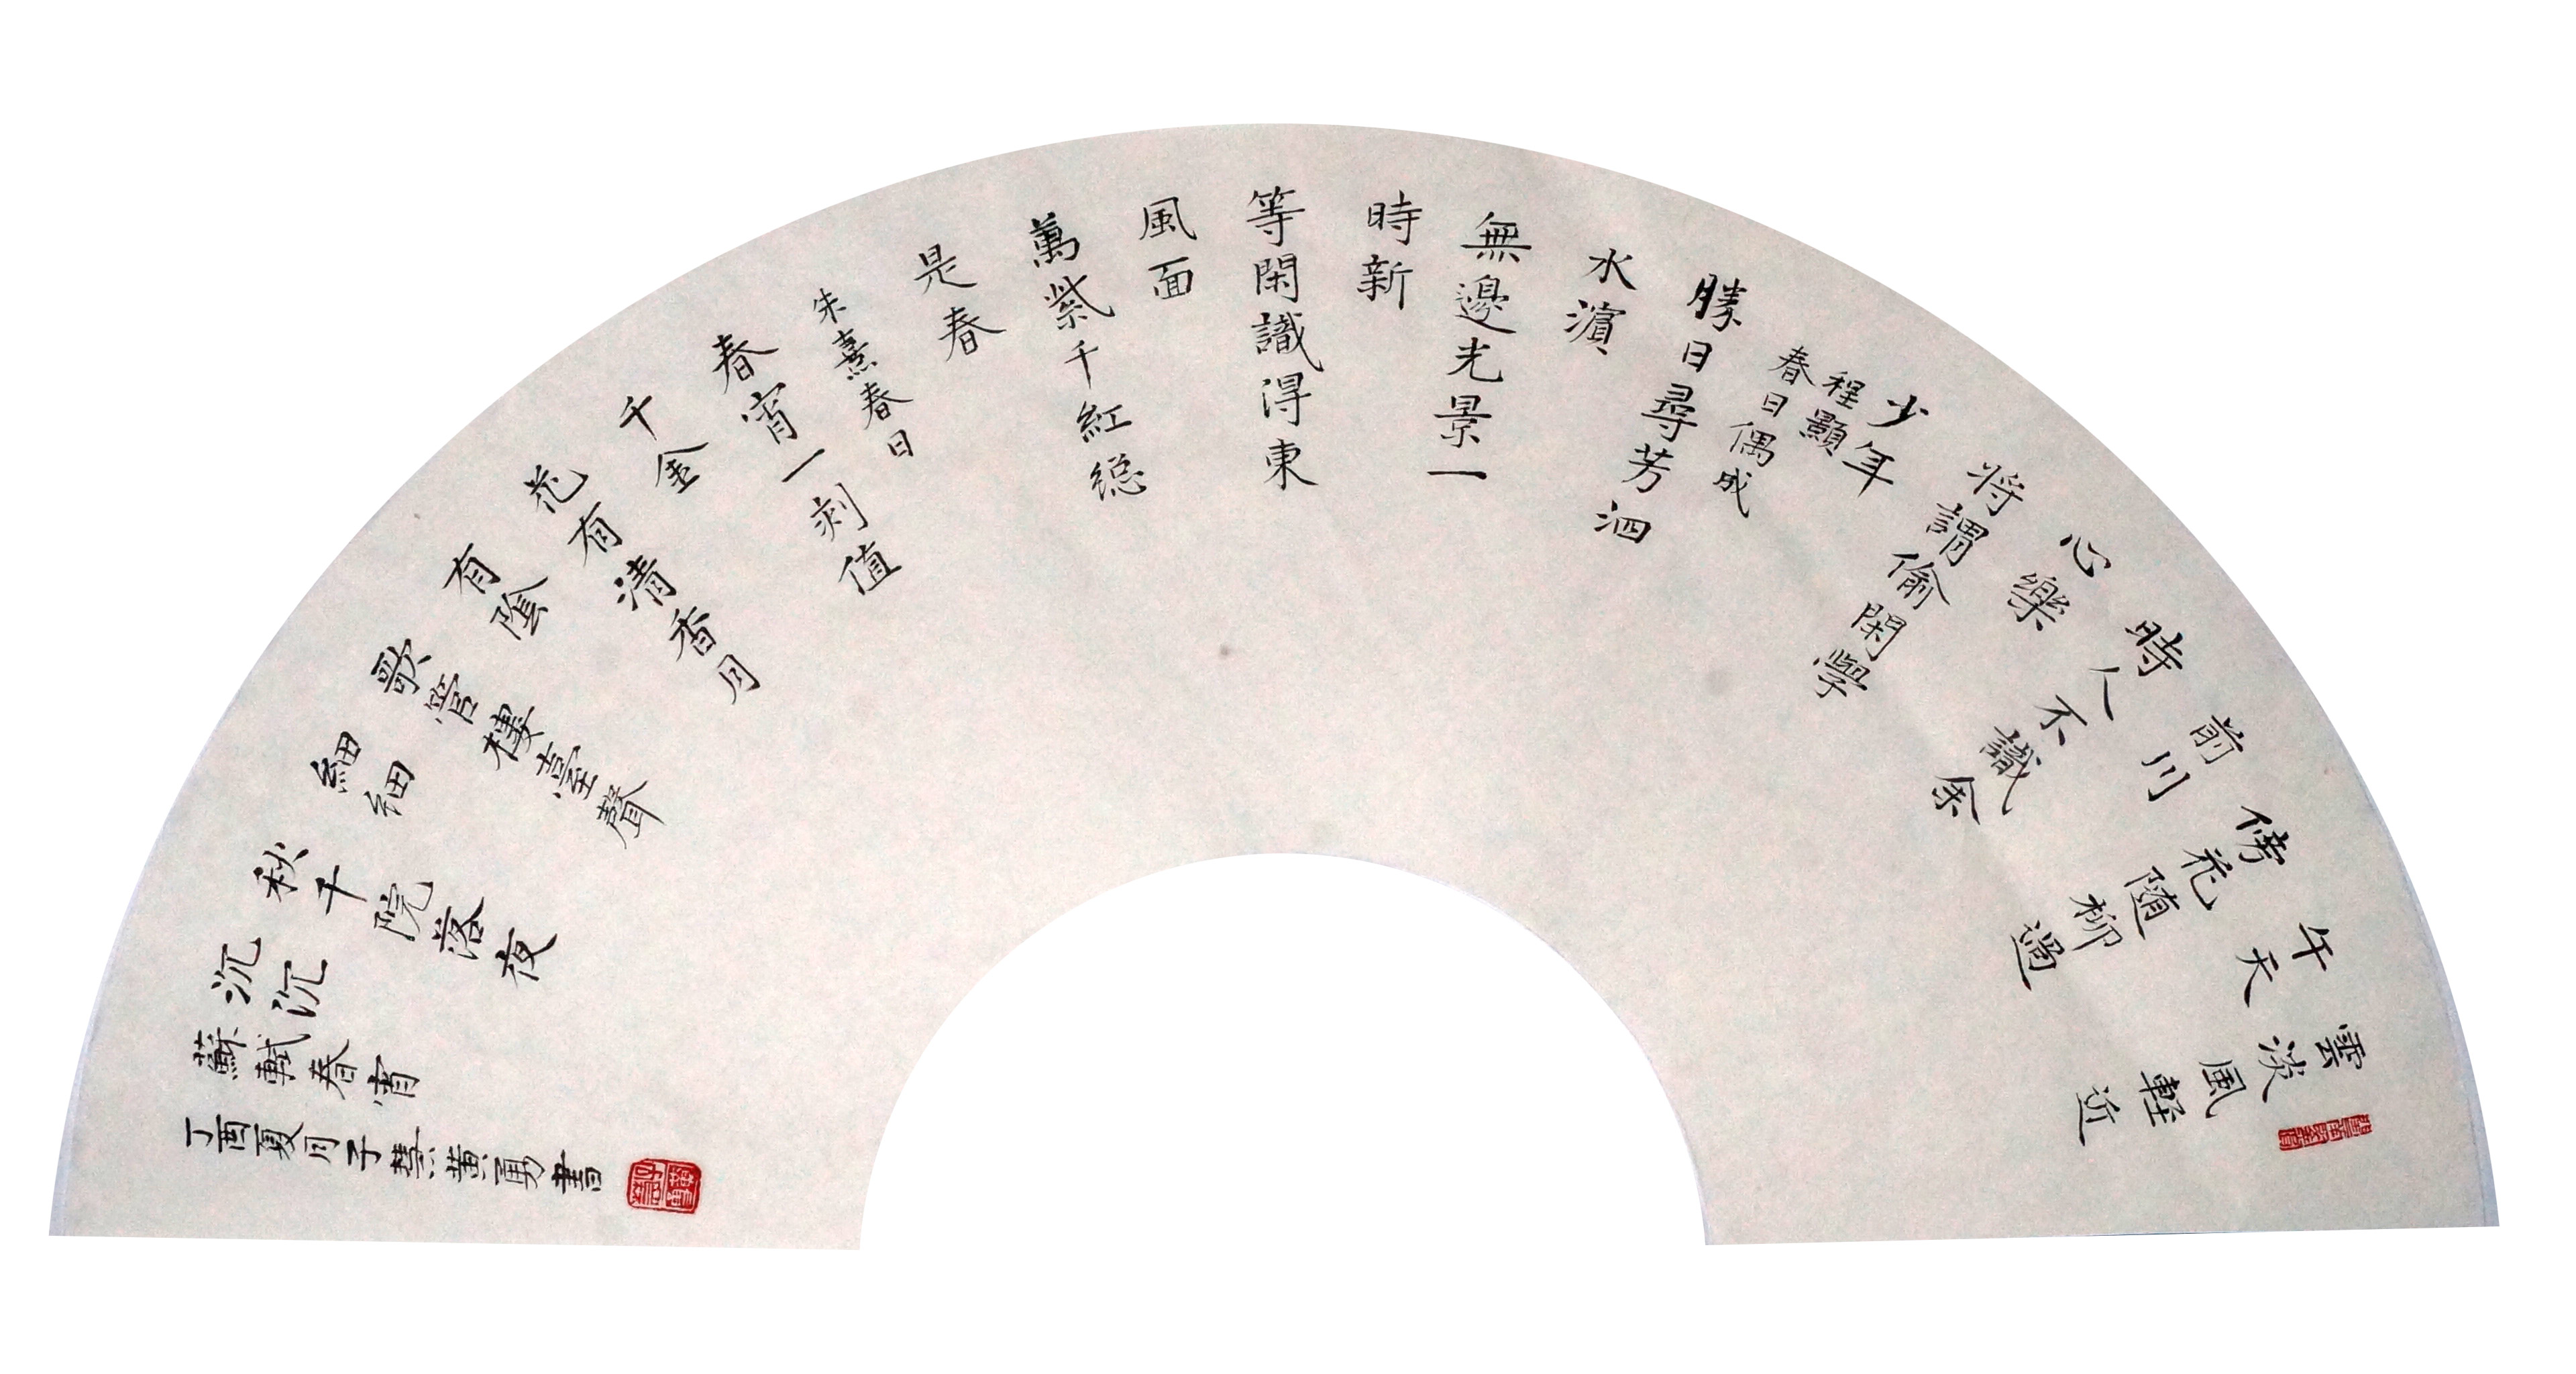 雲淡風輕近
午天
傍花随柳過
前川
時人不識余
心樂
將謂偷閑學
少年
程顥
春日偶成
勝日尋芳泗
水濱
無邊光景一
時新
等閑識得東
風面
萬紫千紅総
是春
朱熹春日
春宵一刻值
千金
花有清香月
有陰
歌管樓臺聲
細細
秋千院落夜
沉沉
蘇軾春宵
丁酉夏月子慧黄勇書